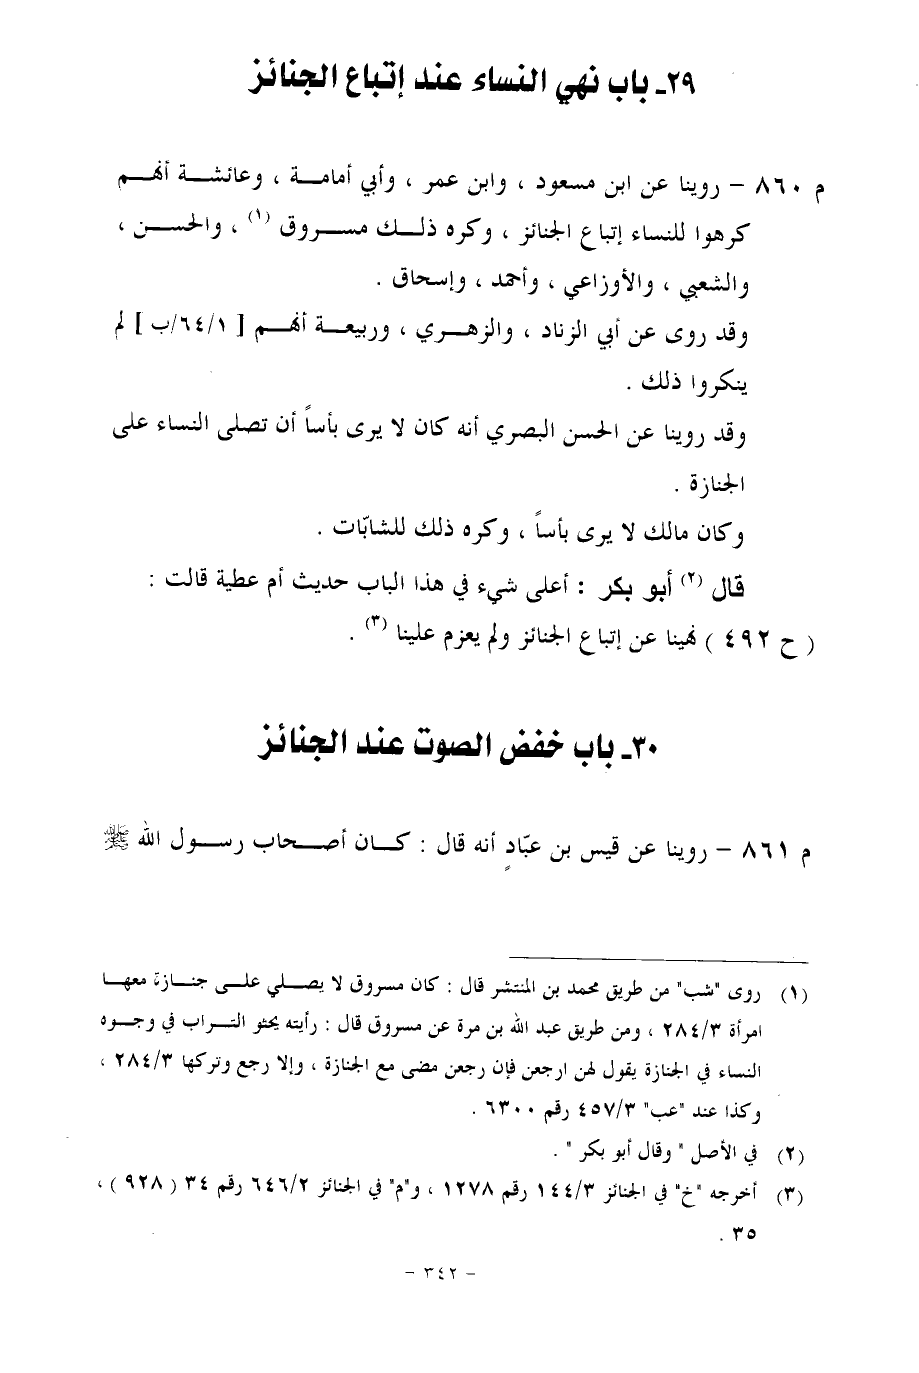 ٢٩ـ باب نهي النساء عند إتباع الجنائز
م ٨٦٠ – روينا عن ابن مسعود ، وابن عمر ، وأبي أمامة ، وعائشة أنهم
كرهوا للنساء إتباع الجنائز ، وكره ذلك مسروق (١) ، والحسن ،
والشعبي ، والأوزاعي ، وأحمد ، وإسحاق .
وقد روى عن أبي الزناد ، والزهري ، وربيعة أنهم [ ٦٤/١/ب ] لم
ينكروا ذلك .
وقد روينا عن الحسن البصري أنه كان لا يرى بأساً أن تصلى النساء على
الجنازة .
وكان مالك لا يرى بأساً ، وكره ذلك للشابّات .
قال (٢) أبو بكر : أعلى شيء في هذا الباب حديث أم عطية قالت :
( ح ٤٩٢ ) نهينا عن إتباع الجنائز ولم يعزم علينا (٣) .
٣٠ـ باب خفض الصوت عند الجنائز
م ٨٦١ – روينا عن قيس بن عبّادٍ أنه قال : كان أصحاب رسول الله ﷺ
(١) روى "شب" من طريق محمد بن المنتشر قال : كان مسروق لا يصلي على جنازة معها
امرأة ٢٨٤/٣ ، ومن طريق عبد الله بن مرة عن مسروق قال : رأيته يحثو التراب في وجوه
النساء في الجنازة يقول لهن ارجعن فإن رجعن مضى مع الجنازة ، وإلا رجع وتركها ٢٨٤/٣ ،
وكذا عند "عب" ٤٥٧/٣ رقم ٦٣٠٠ .
(٢) في الأصل " وقال أبو بكر " .
(٣) أخرجه "خ" في الجنائز ١٤٤/٣ رقم ١٢٧٨ ، و"م" في الجنائز ٦٤٦/٢ رقم ٣٤ ( ٩٢٨ ) ،
٣٥ .
– ٣٤٢ –